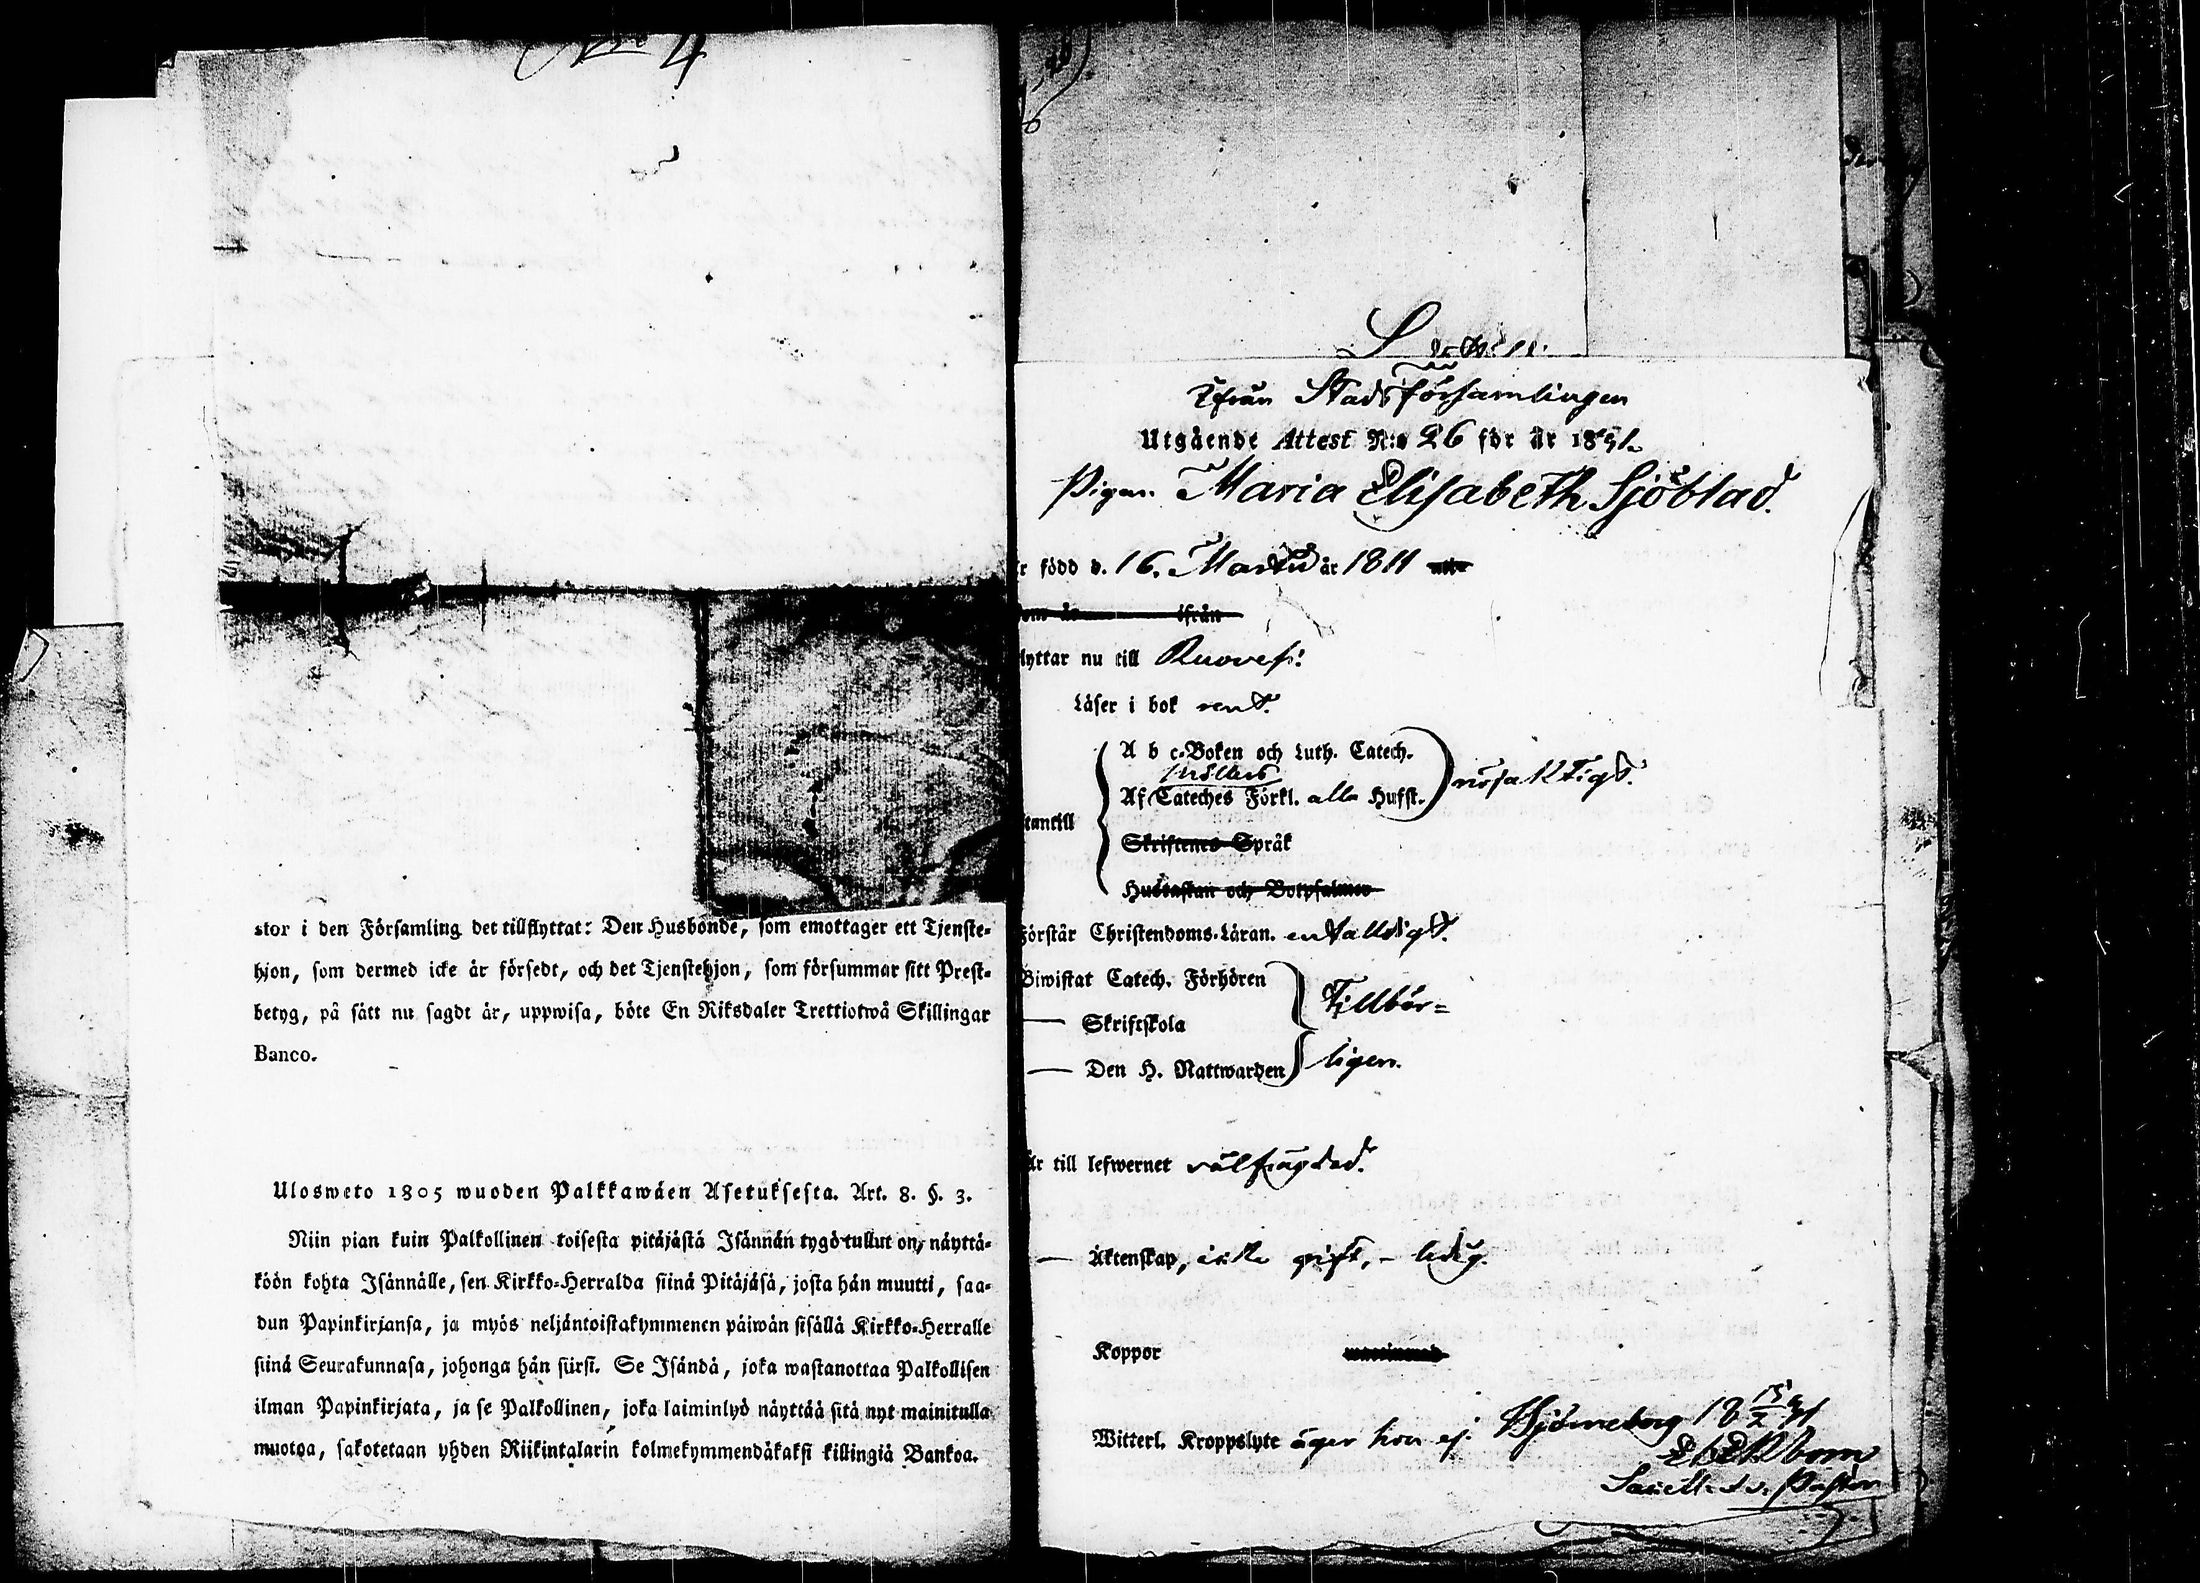 N:o 4
stor i den Församling det tillflyttat: Den Husbonde, som emottager ett Tjenste-
hjon, som dermed icke är försedt, och det Tjenstehjon, som försummar sitt Prest-
betyg, på sätt nu sagdt är, uppwisa, böte En Riksdaler Trettiotwå Skillingar
Banco.
Ulosweto 1805 wuoden Palkkawäen Asetuksesta. Art. 8. §. 3.
Niin pian kuin Palkollinen toisesta pitäjästä Isännän tygö tullut on, näyttä-
köön kohta Isännälle, sen Kirkko-Herralda siinä Pitäjäsä, josta hän muutti, saa-
dun Papinkirjansa, ja myös neljäntoistakymmenen päiwän sisällä Kirkko-Herralle
siinä Seurakunnasa, johonga hän siirsi. Se Isändä, joka wastanottaa Palkollisen
ilman Papinkirjata, ja se Palkollinen, joka laiminlyö näyttää sitä nyt mainitulla
muotoa, sakotetaan yhden Riikintalarin kolmekymmendäkaksi killingiä Bankoa.
Ifrån Stadsförsamlingen
Utgående Attest N:o 26 för år 1851
Pigan Maria Elisabeth Sjöblad.
r född d. 16. Martii år 1811
om år ifrån
lyttar nu till Ruovesi
Läser i bok rent.
A b c-Boken och Luth. Catech.
Möllers
Af Cateches Förkl. alla Hufst. nöjaktigt.
tantill
Skriftenes Språk
Hustaflan och Botpsalmer
Förstår Christendoms-Läran. enfalldigt.
Biwistat Catech. Förhören
Tillbör-
— Skriftskola
— Den H. Nattwarden ligen.
Är till lefwernet välfrägdad.
— Äktenskap, icke gift, - ledig.
Koppor
Witterl. Kroppslyte äger hon ej. Björneborg 18 15/2 51
Pastor